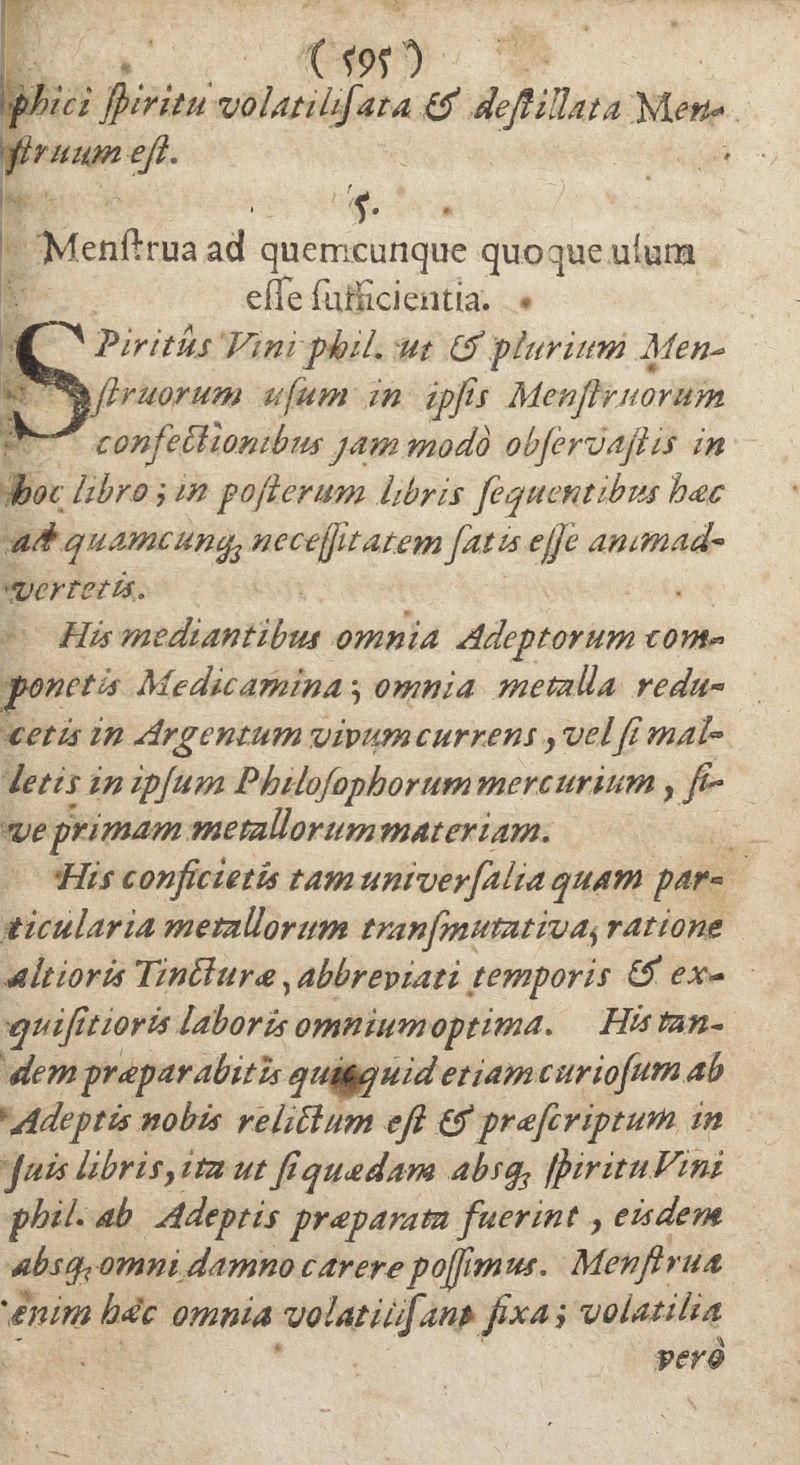 ( 595 )
phici ſpiritu volatiliſata & deſtillata Men-
ſtruum eſt.
5.
Menſtrua ad quemcunque quoque uſum
eſſe ſufficientia.
SPiritûs Vini phil. ut & plurium Men-
ſtruorum uſum in ipſis Menſtruorum
confectionibus jam modò obſervaſtis in
hoc libro; in poſterum libris ſequentibus hæc
ad quamcunq; neceſſitatem ſatis eſſe animad-
vertetis.
His mediantibus omnia Adeptorum com-
ponetis Medicamina; omnia metalla redu-
cetis in Argentum vivum currens, vel ſi mal-
letis in ipſum Philoſophorum mercurium, ſi-
ve primam metallorum materiam.
His conficietis tam univerſalia quam par-
ticularia metallorum tranſmutativa, ratione
altioris Tincturæ, abbreviati temporis & ex-
quiſitioris laboris omnium optima. His tan-
dem præparabitis quicquid etiam curioſum ab
Adeptis nobis relictum eſt & præſcriptum in
ſuis libris, ita ut ſi quædam absq; ſpiritu Vini
phil. ab Adeptis præparata fuerint, eisdem
absq; omni damno carere poſſimus. Menſtrua
enim hæc omnia volatiliſant fixa; volatilia
verò